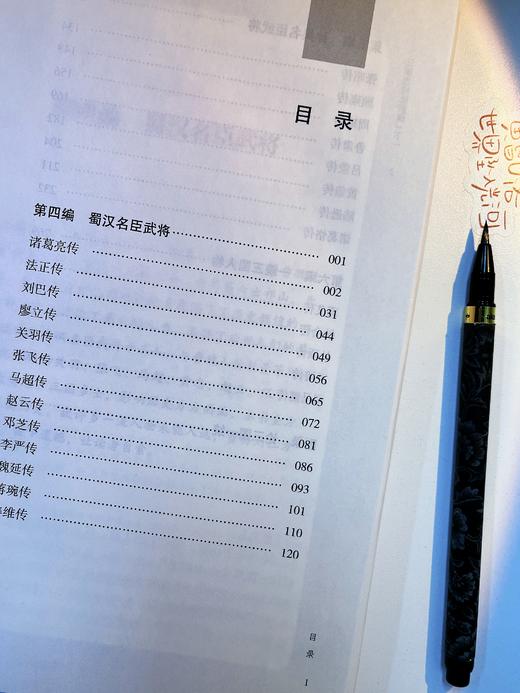 目 录
第四编 蜀汉名臣武将……001
诸葛亮传……002
法正传……031
刘巴传……044
廖立传……049
关羽传……056
张飞传……065
马超传……072
赵云传……081
邓芝传……086
李严传……093
魏延传……101
蒋琬传……110
维传……120
目
录
1